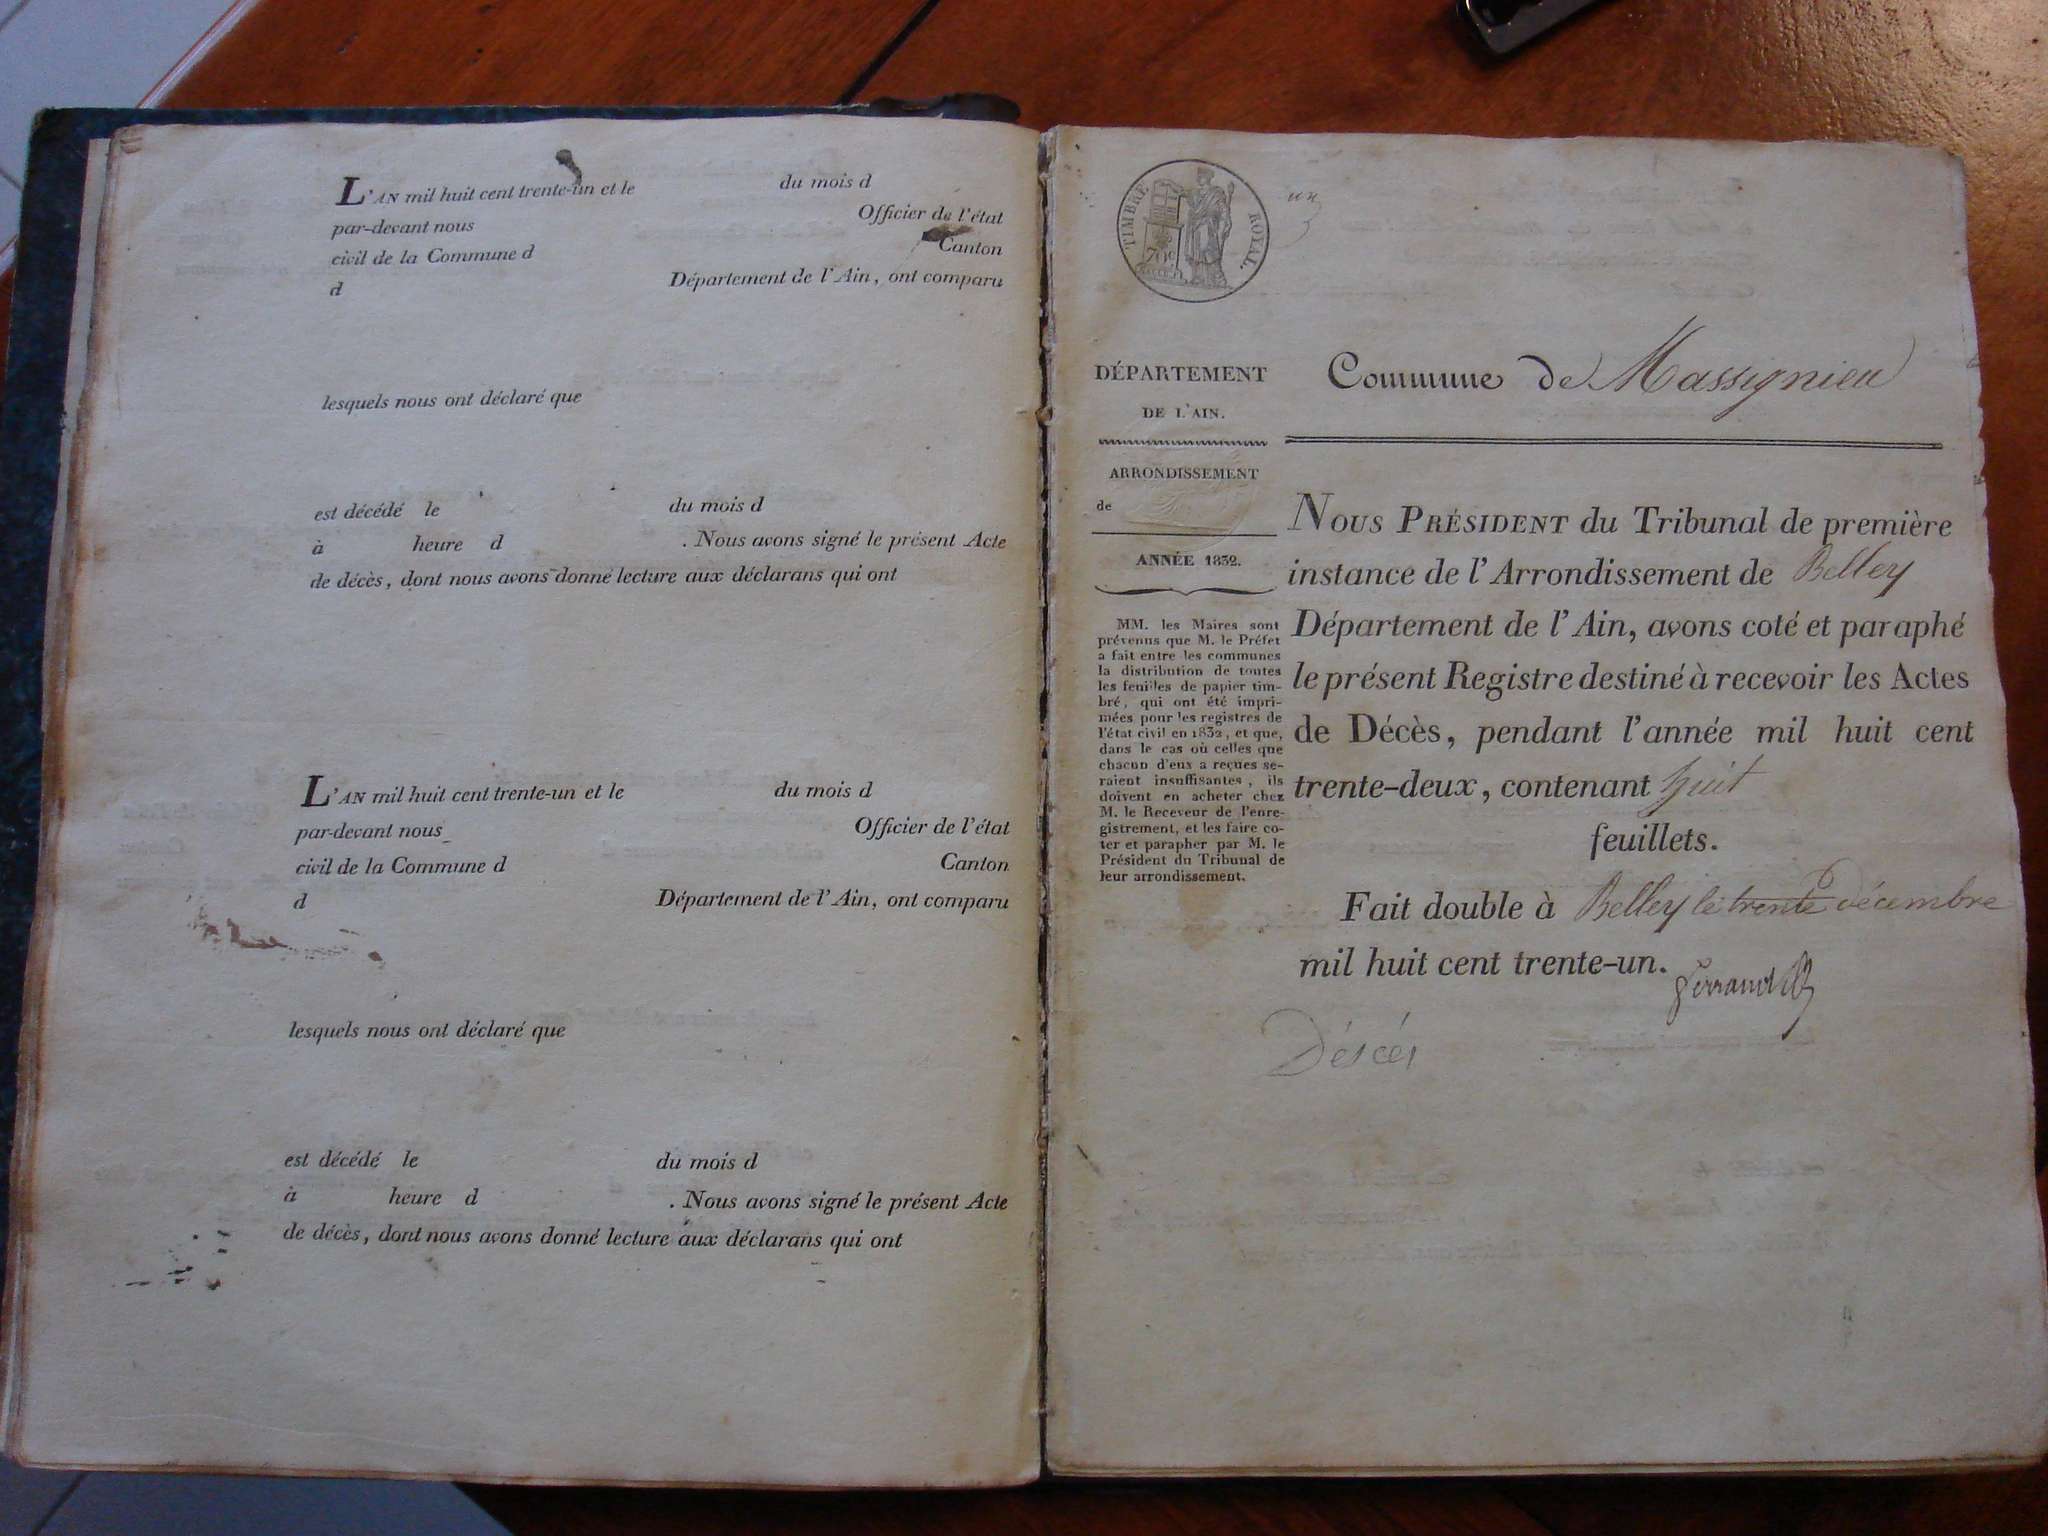 L'AN mil huit cent trente-un et le du mois d
par-devant nous Officier de l'état
civil de la Commune d Canton
d Département de l'Ain, ont comparu
lesquels nous ont déclaré que
est décédé le du mois d
à heure d . Nous avons signé le présent Acte
de décès, dont nous avons donné lecture aux déclarans qui ont
L'AN mil huit cent trente-un et le du mois d
par-devant nous Officier de l'état
civil de la Commune d Canton
d Département de l'Ain, ont comparu
lesquels nous ont déclaré que
est décédé le du mois d
à heure d . Nous avons signé le présent Acte
de décès, dont nous avons donné lecture aux déclarans qui ont
TIMBRE ROYAL.
70c
un
DÉPARTEMENT
DE L'AIN.
ARRONDISSEMENT
de
ANNÉE 1832.
MM. les Maires sont
prévenus que M. le Préfet
a fait entre les communes
la distribution de toutes
les feuilles de papier tim-
bré, qui ont été impri-
mées pour les registres de
l'état civil en 1832, et que,
dans le cas où celles que
chacun d'eux a reçues se-
raient insuffisantes, ils
doivent en acheter chez
M. le Receveur de l'enre-
gistrement, et les faire co-
ter et parapher par M. le
Président du Tribunal de
leur arrondissement.
Commune de Massignieu
NOUS PRÉSIDENT du Tribunal de première
instance de l'Arrondissement de Belley
Département de l'Ain, avons coté et paraphé
le présent Registre destiné à recevoir les Actes
de Décès, pendant l'année mil huit cent
trente-deux, contenant huit
feuillets.
Fait double à Belley le trente décembre
mil huit cent trente-un.
Ferrand
Déscés